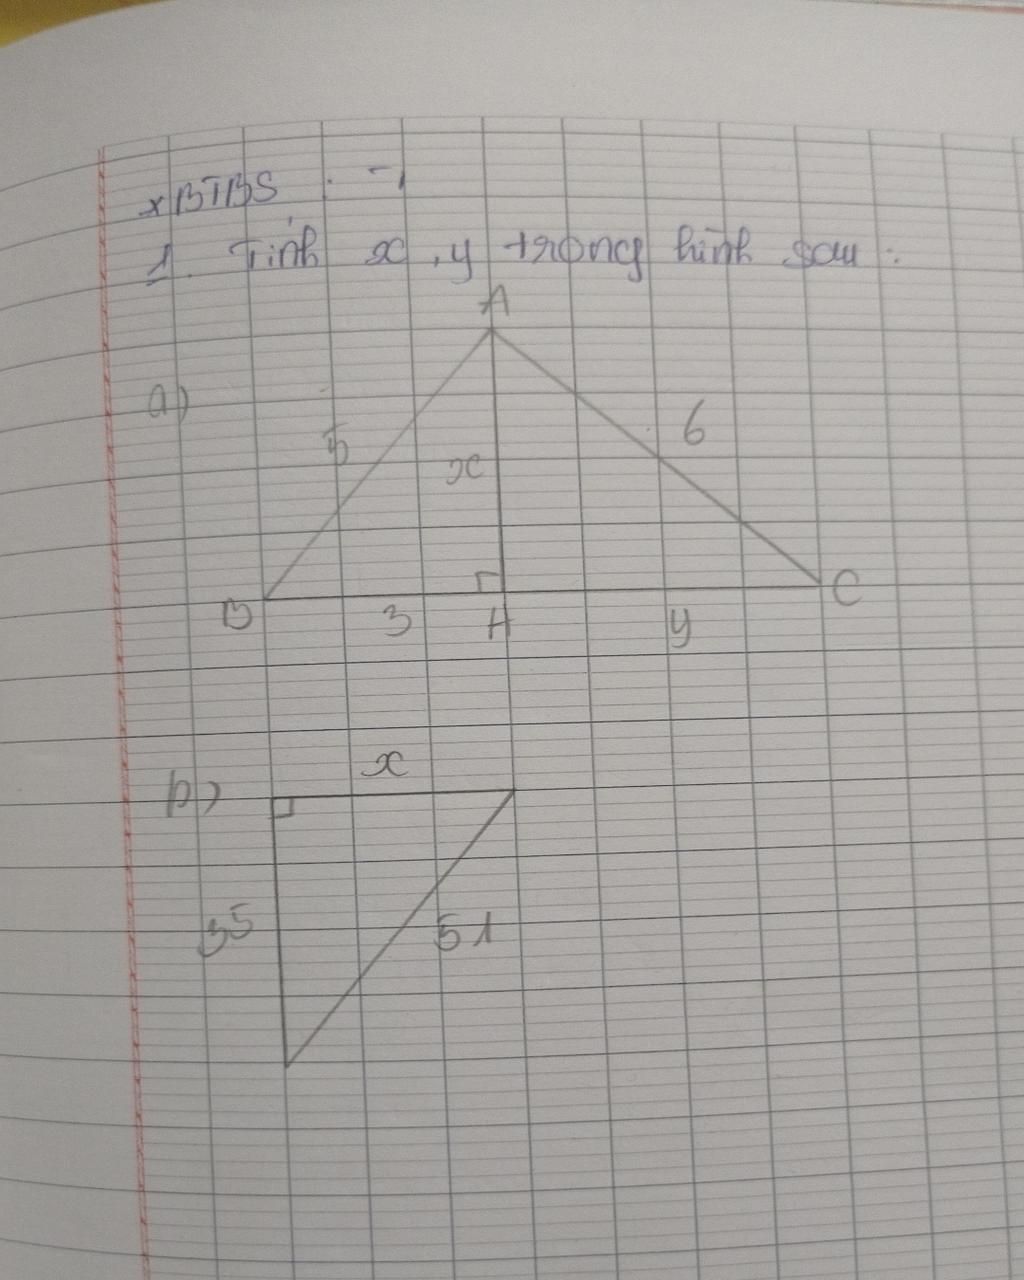 * BTBS :
1. Tính x, y trong hình sau :
A
a)
5
x
6
B
3
H
y
C
x
b)
35
51